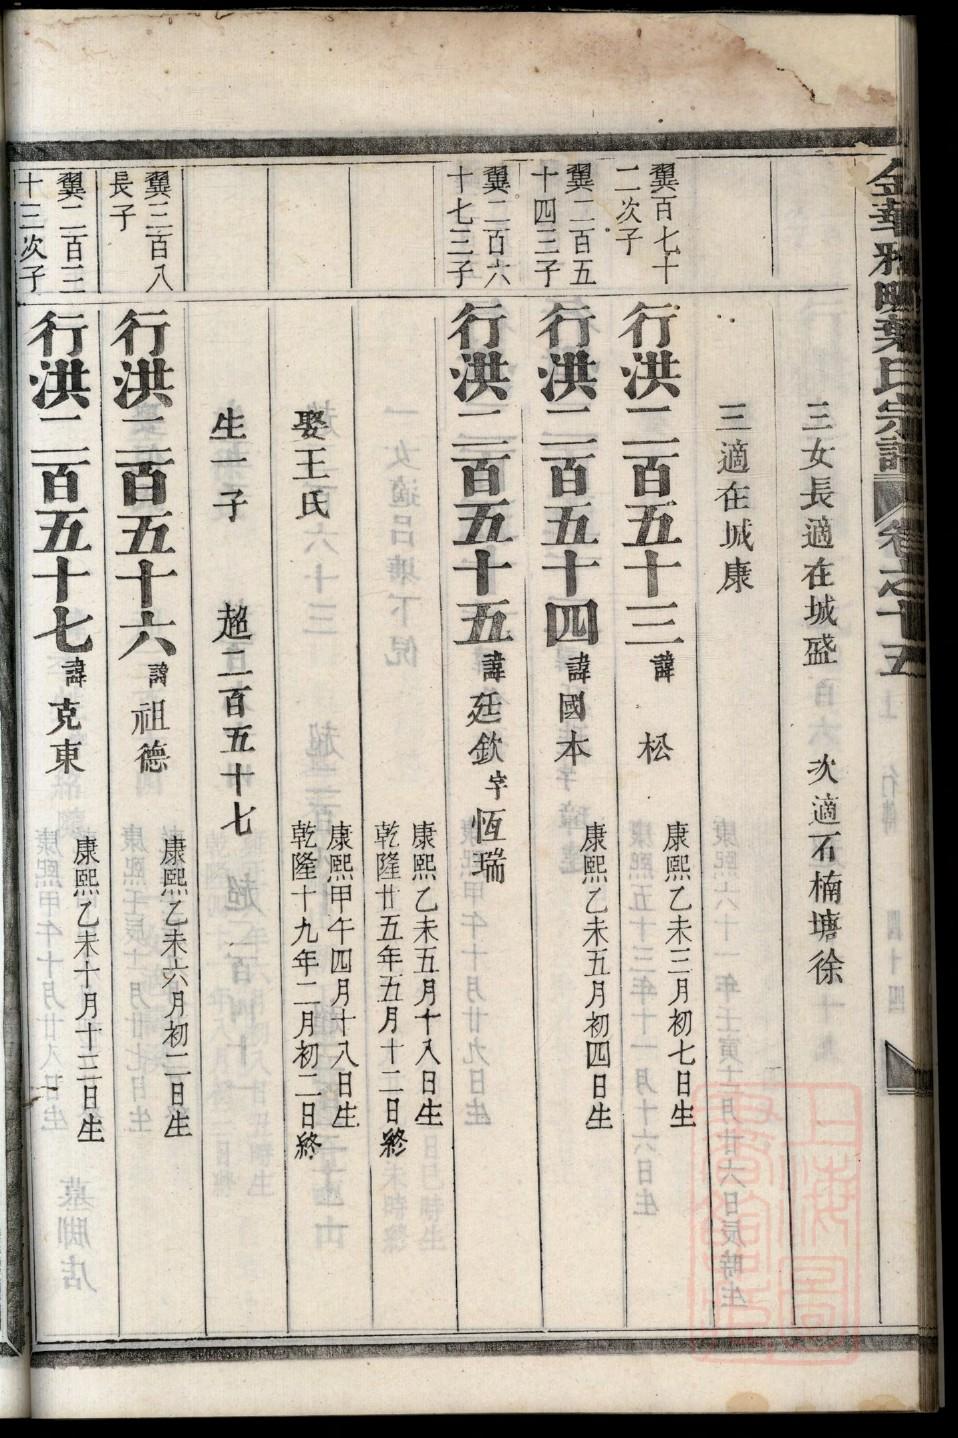 三女長適在城盛 次適石楠塘徐
三適在城康
翼百七十二次子
行洪二百五十三諱松 康熙乙未三月初七日生
翼二百五十四三子
行洪二百五十四諱國本 康熙乙未五月初四日生
翼二百六十七三子
行洪二百五十五諱廷欽字恆瑞
康熙乙未五月十八日生
乾隆廿五年五月十二日終
娶王氏
康熙甲午四月十八日生
乾隆十九年二月初二日終
生一子 超二百五十七
翼三百八長子
行洪二百五十六諱祖德 康熙乙未六月初二日生
翼二百三十三次子
行洪二百五十七諱克東 康熙乙未十月十三日生